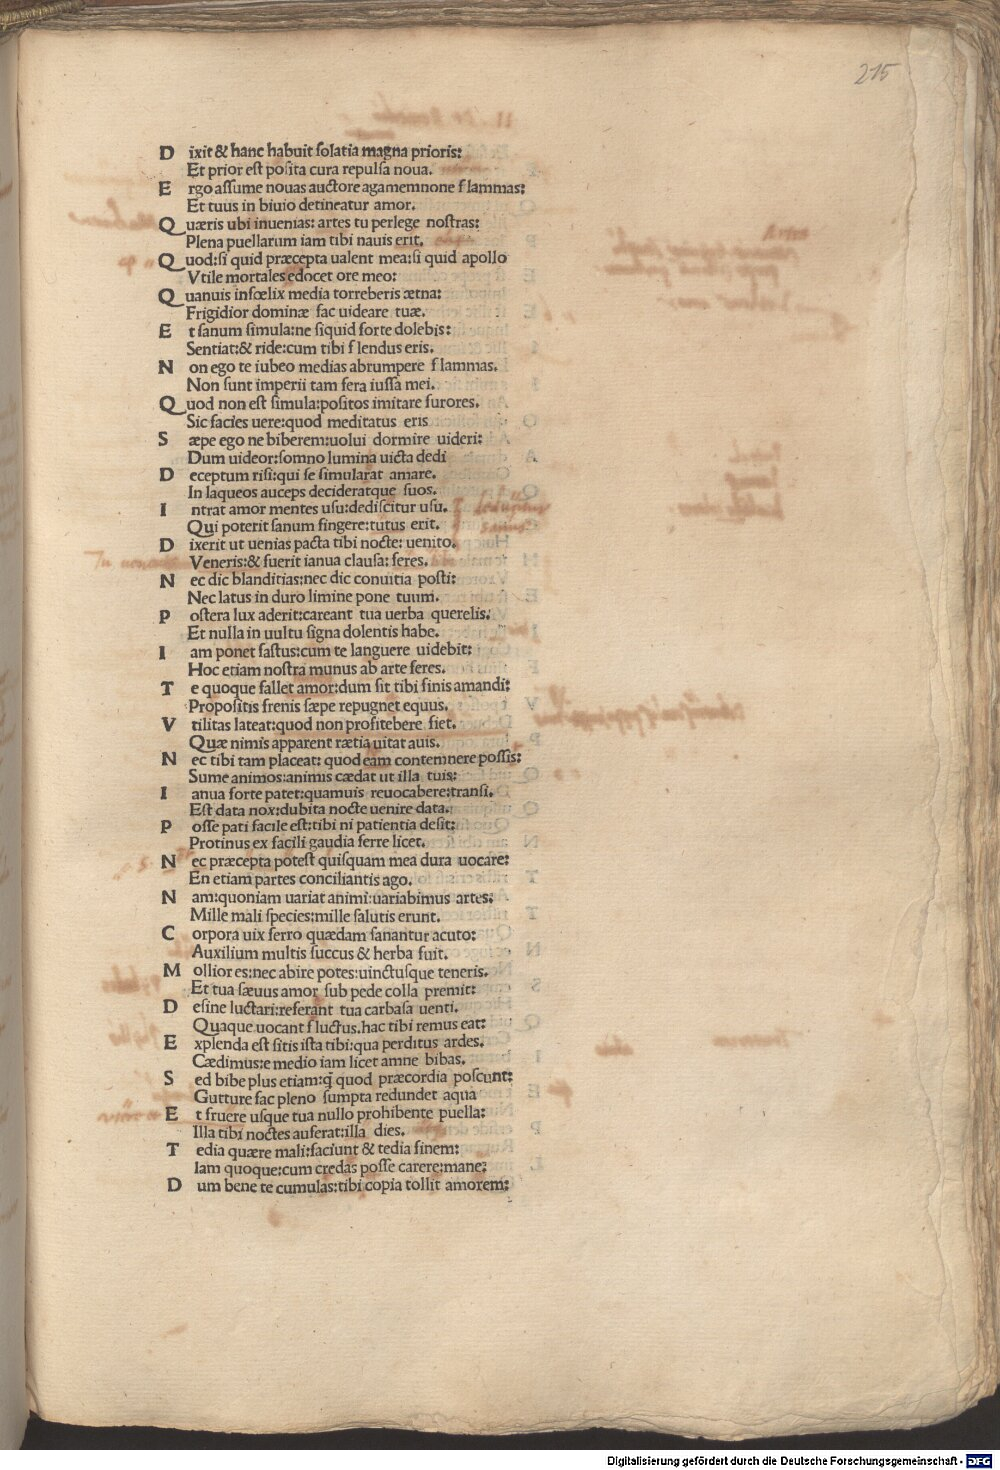 215
Dixit & hanc habuit solatia magna prioris:
Et prior est posita cura repulsa noua.
Ergo assume nouas auctore agamemnone flammas:
Et tuus in biuio detineatur amor.
Quæris ubi inuenias: artes tu perlege nostras:
Plena puellarum iam tibi nauis erit.
Quod:si quid præcepta ualent mea:si quid apollo
Vtile mortales edocet ore meo:
Quanuis infœlix media torreberis ætna:
Frigidior dominæ fac uideare tuæ.
Et sanum simula:ne siquid forte dolebis:
Sentiat:& ride:cum tibi flendus eris.
Non ego te iubeo medias abrumpere flammas.
Non sunt imperii tam fera iussa mei.
Quod non est simula:positos imitare furores.
Sic facies uere:quod meditatus eris
Sæpe ego ne biberem:uolui dormire uideri:
Dum uideor:somno lumina uicta dedi
Deceptum risi:qui se simularat amare.
In laqueos auceps decideratque suos.
Intrat amor mentes usu:dediscitur usu.
Qui poterit sanum fingere:tutus erit.
Dixerit ut uenias pacta tibi nocte: uenito.
Veneris:& fuerit ianua clausa: feres.
Nec dic blanditias:nec dic conuitia posti:
Nec latus in duro limine pone tuum.
Postera lux aderit:careant tua uerba querelis.
Et nulla in uultu signa dolentis habe.
Iam ponet fastus:cum te languere uidebit:
Hoc etiam nostra munus ab arte feres.
Te quoque fallet amor:dum sit tibi finis amandi:
Propositis frenis sæpe repugnet equus.
Vtilitas lateat:quod non profitebere fiet.
Quæ nimis apparent rætia uitat auis.
Nec tibi tam placeat: quod eam contemnere possis:
Sume animos:animis cædat ut illa tuis:
Ianua forte patet:quamuis reuocabere:transi.
Est data nox:dubita nocte uenire data.
Posse pati facile est:tibi ni patientia desit:
Protinus ex facili gaudia ferre licet.
Nec præcepta potest quisquam mea dura uocare:
En etiam partes conciliantis ago.
Nam:quoniam uariat animi:uariabimus artes:
Mille mali species:mille salutis erunt.
Corpora uix ferro quædam sanantur acuto:
Auxilium multis succus & herba fuit.
Mollior es:nec abire potes:uinctusque teneris.
Et tua sæuus amor sub pede colla premit:
Desine luctari:referant tua carbasa uenti.
Quaque uocant fluctus.hac tibi remus eat:
Explenda est sitis ista tibi:qua perditus ardes.
Cædimus:e medio iam licet amne bibas.
Sed bibe plus etiam:q̃ quod præcordia poscunt:
Gutture fac pleno sumpta redundet aqua
Et fruere usque tua nullo prohibente puella:
Illa tibi noctes auferat:illa dies.
Tedia quære mali:faciunt & tedia finem:
Iam quoque:cum credas posse carere:mane:
Dum bene te cumulas:tibi copia tollit amorem:
Digitalisierung gefördert durch die Deutsche Forschungsgemeinschaft - DFG